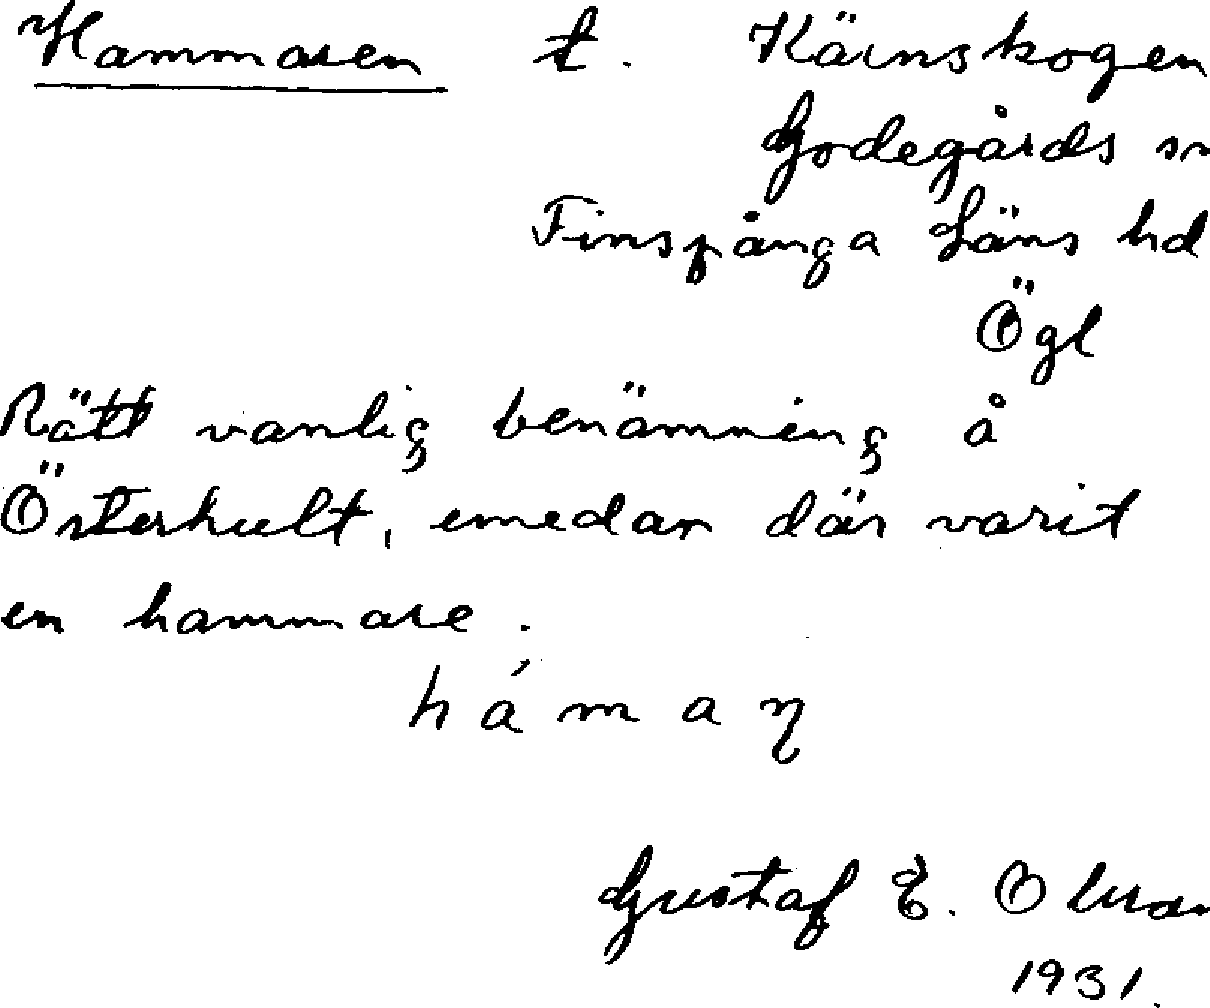 Hammaren t. Kärnskogen
Godegårds sn
Finspånga Läns hd
Ögl
Rätt vanlig benämning å
Österhult, emedan där varit
en hammare.
hámaŋ
Gustaf E. Olsson
1931.